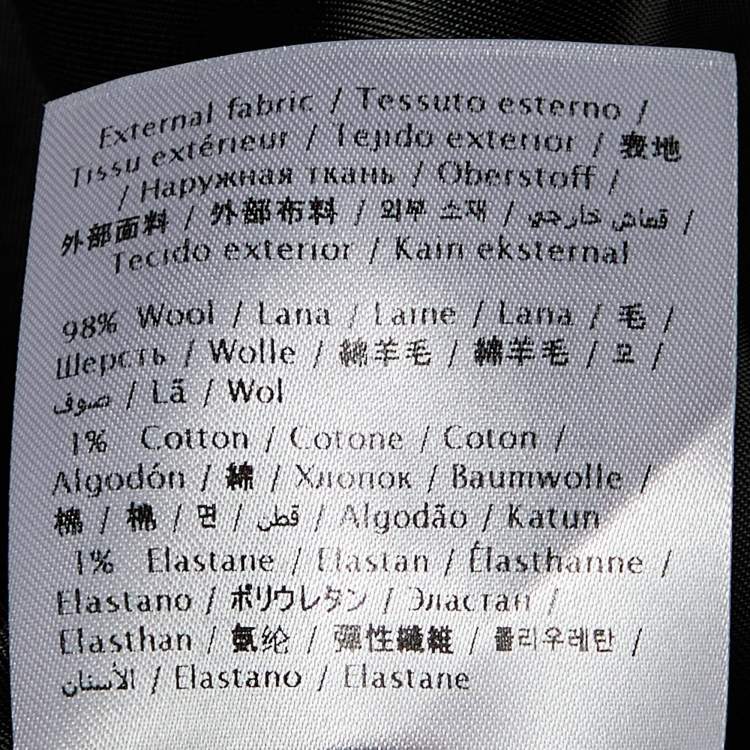 External fabric / Tessuto esterno /
Tissu extérieur / Tejido exterior / 表地
/ Наружная ткань / Oberstoff /
外部面料 / 外部布料 / 외부 소재 / قماش خارجي /
Tecido exterior / Kain eksternal
98% Wool / Lana / Laine / Lana / 毛 /
Шерсть / Wolle / 綿羊毛 / 綿羊毛 / 모 /
صوف / Lã / Wol
1% Cotton / Cotone / Coton /
Algodón / 綿 / Хлопок / Baumwolle /
棉 / 棉 / 면 / قطن / Algodão / Katun
1% Elastane / Elastan / Élasthanne /
Elastano / ポリウレタン / Эластан /
Elasthan / 氨纶 / 彈性纖維 / 폴리우레탄 /
الأستان / Elastano / Elastane